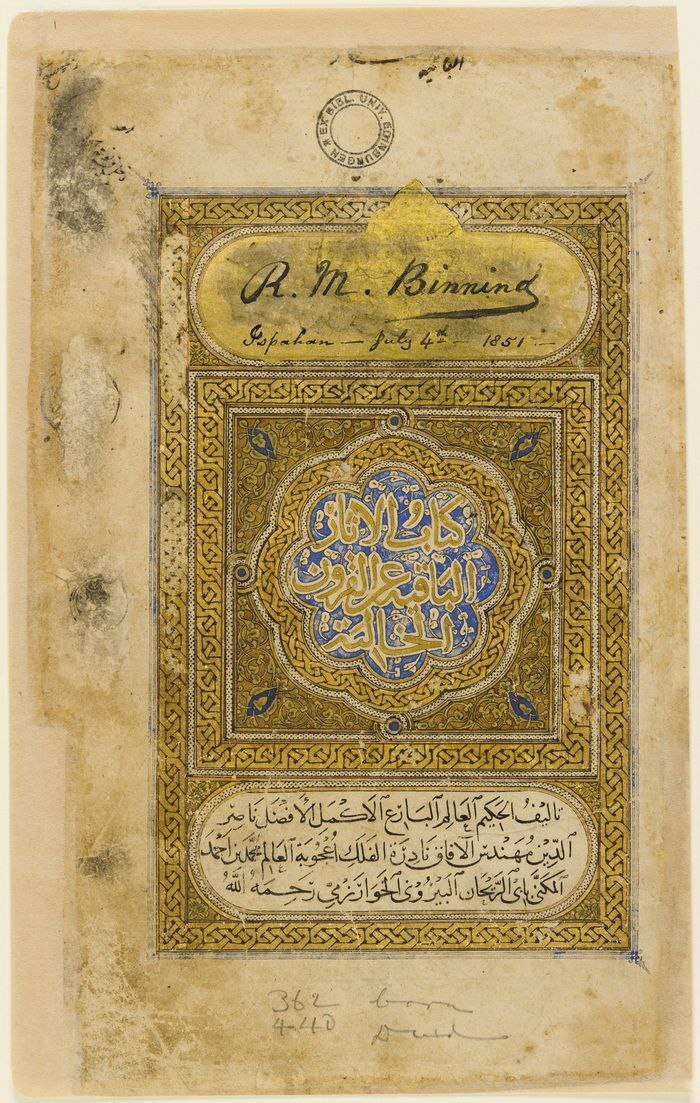 الباقيه
EX BIBL. UNIV. EDINBURGEN
R. M. Binning
Ispahan — July 4th — 1851 —
كتاب الاثار
الباقية عن القرون
الخالية
تاليف الحكيم العالم البارع الاكمل الافضل ناصر
الدين مهندس الآفاق نادرة الفلك اعجوبة العالم محمد بن احمد
المكنى بابى الريحان البيرونى الخوارزمى رحمه الله
362 born
440 Died